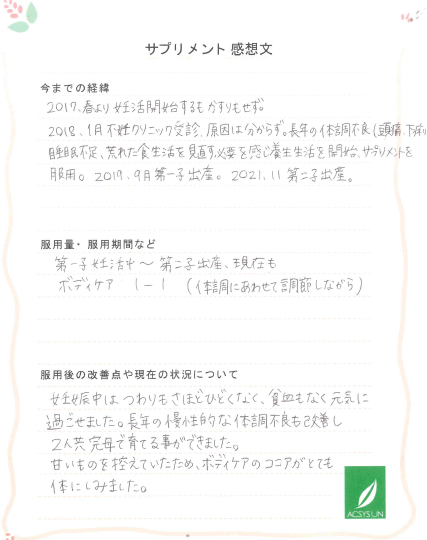 サプリメント 感想文
今までの経緯
2017、春より妊活開始するもかすりもせず。
2018、1月不妊クリニック受診、原因は分からず。長年の体調不良(頭痛、下痢
睡眠不足、荒れた食生活を見直す必要を感じ養生生活を開始、サプリメントを
服用。2019、9月第一子出産。2021、11第二子出産。
服用量・服用期間など
第一子妊活中〜第二子出産、現在も
ボディケア 1-1 (体調にあわせて調節しながら)
服用後の改善点や現在の状況について
妊娠中はつわりもさほどひどくなく、貧血もなく元気に
過ごせました。長年の慢性的な体調不良も改善し
2人共完母で育てる事ができました。
甘いものを控えていたため、ボディケアのココアがとても
体にしみました。
ACSYSUN